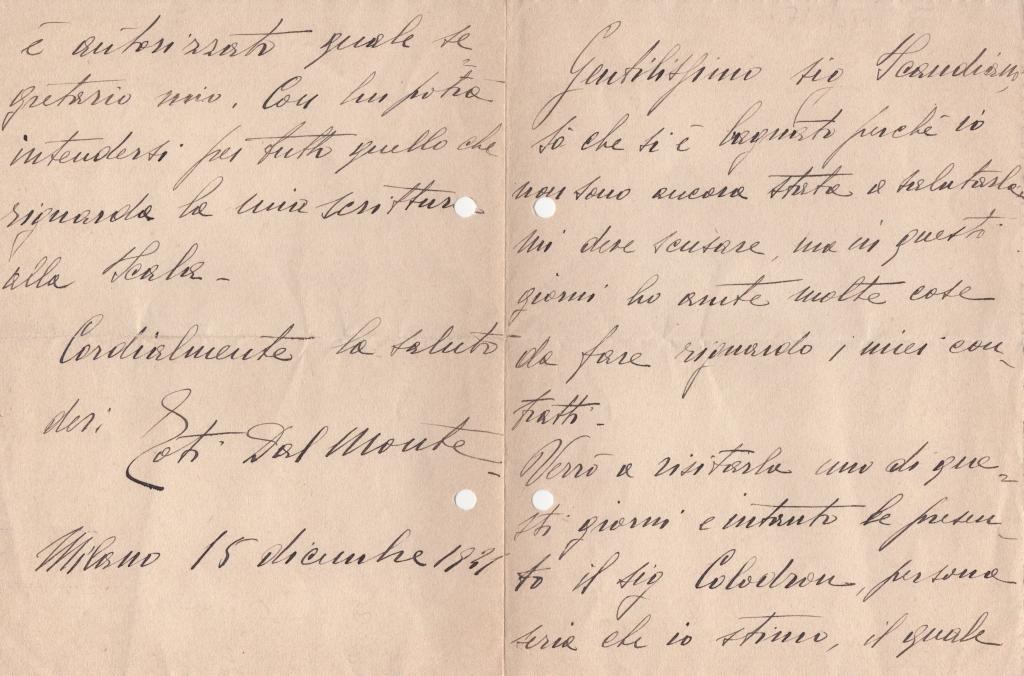 Gentilissimo sig Scandiani,
Sò che si è lagnato perché io
non sono ancora stata a salutarla
mi deve scusare, ma in questi
giorni ho avute molte cose
da fare riguardo i miei con-
tratti -
Verrò a visitarla uno di que-
sti giorni e intanto le presen-
to il sig Colodron, persona
seria che io stimo, il quale
è autorizzato quale se-
gretario mio. Con lui potrà
intendersi per tutto quello che
riguarda la mia scrittura
alla Scala -
Cordialmente la saluto
Toti Dal Monte -
Milano 15 dicembre